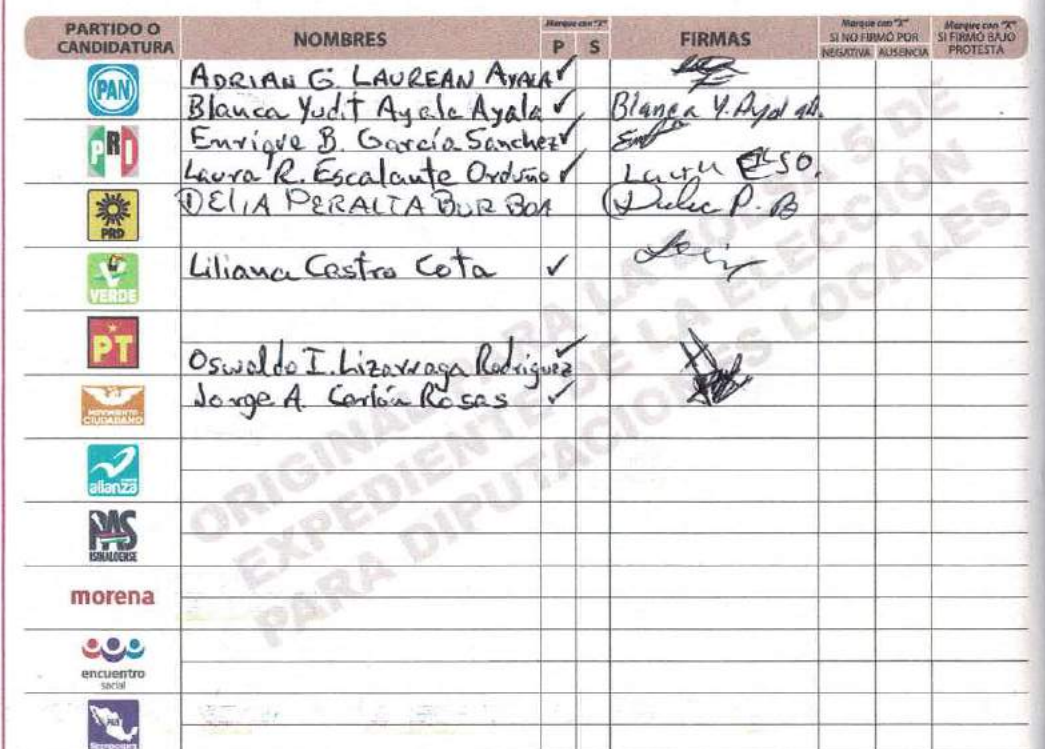 PARTIDO O CANDIDATURA NOMBRES Marque con "X" P S FIRMAS Marque con "X" SI NO FIRMÓ POR NEGATIVA AUSENCIA Marque con "X" SI FIRMÓ BAJO PROTESTA
PAN ADRIAN G. LAUREAN AYALA
Blanca Yudit Ayala Ayala Blanca Y. Ayal
PRI Enrique B. García Sanchez
Laura R. Escalante Orduño Laura
PRD DELIA PERALTA BURBOA P. B
VERDE Liliana Castro Cota
PT Oswaldo I. Lizarraga Rodriguez
MOVIMIENTO CIUDADANO Jorge A. Carlón Rosas
alianza
PAS SINALOENSE
morena
encuentro social
ORIGINAL PARA LA BOLSA 5 DE
EXPEDIENTE DE LA ELECCIÓN
PARA DIPUTACIONES LOCALES